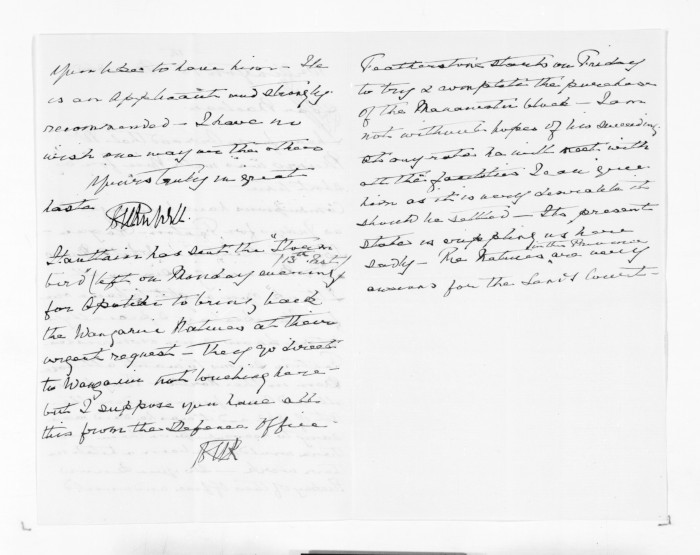 you like to have him – He
is an applicant and strongly
recommended – I have no
wish one way or the other
Yours truly in great
haste

Stafford has sent the "Storm
bird" (left on Monday evening
13th Inst)
for Opotiki to bring back
the Wanganui Natives at their
urgent request – They go direct
to Wanganui not touching here –
but I suppose you have all
this from the Defence Office –

Featherston starts on Friday
to try & complete the purchase
of the Manawatu block – I am
not without hopes of his succeeding.
At any rate he will meet with
all the facilities I can give
him as it is very desirable it
should be settled – Its present
state is crippling us here
sadly – The Natives are very
in the Province
anxious for the Lands Court –